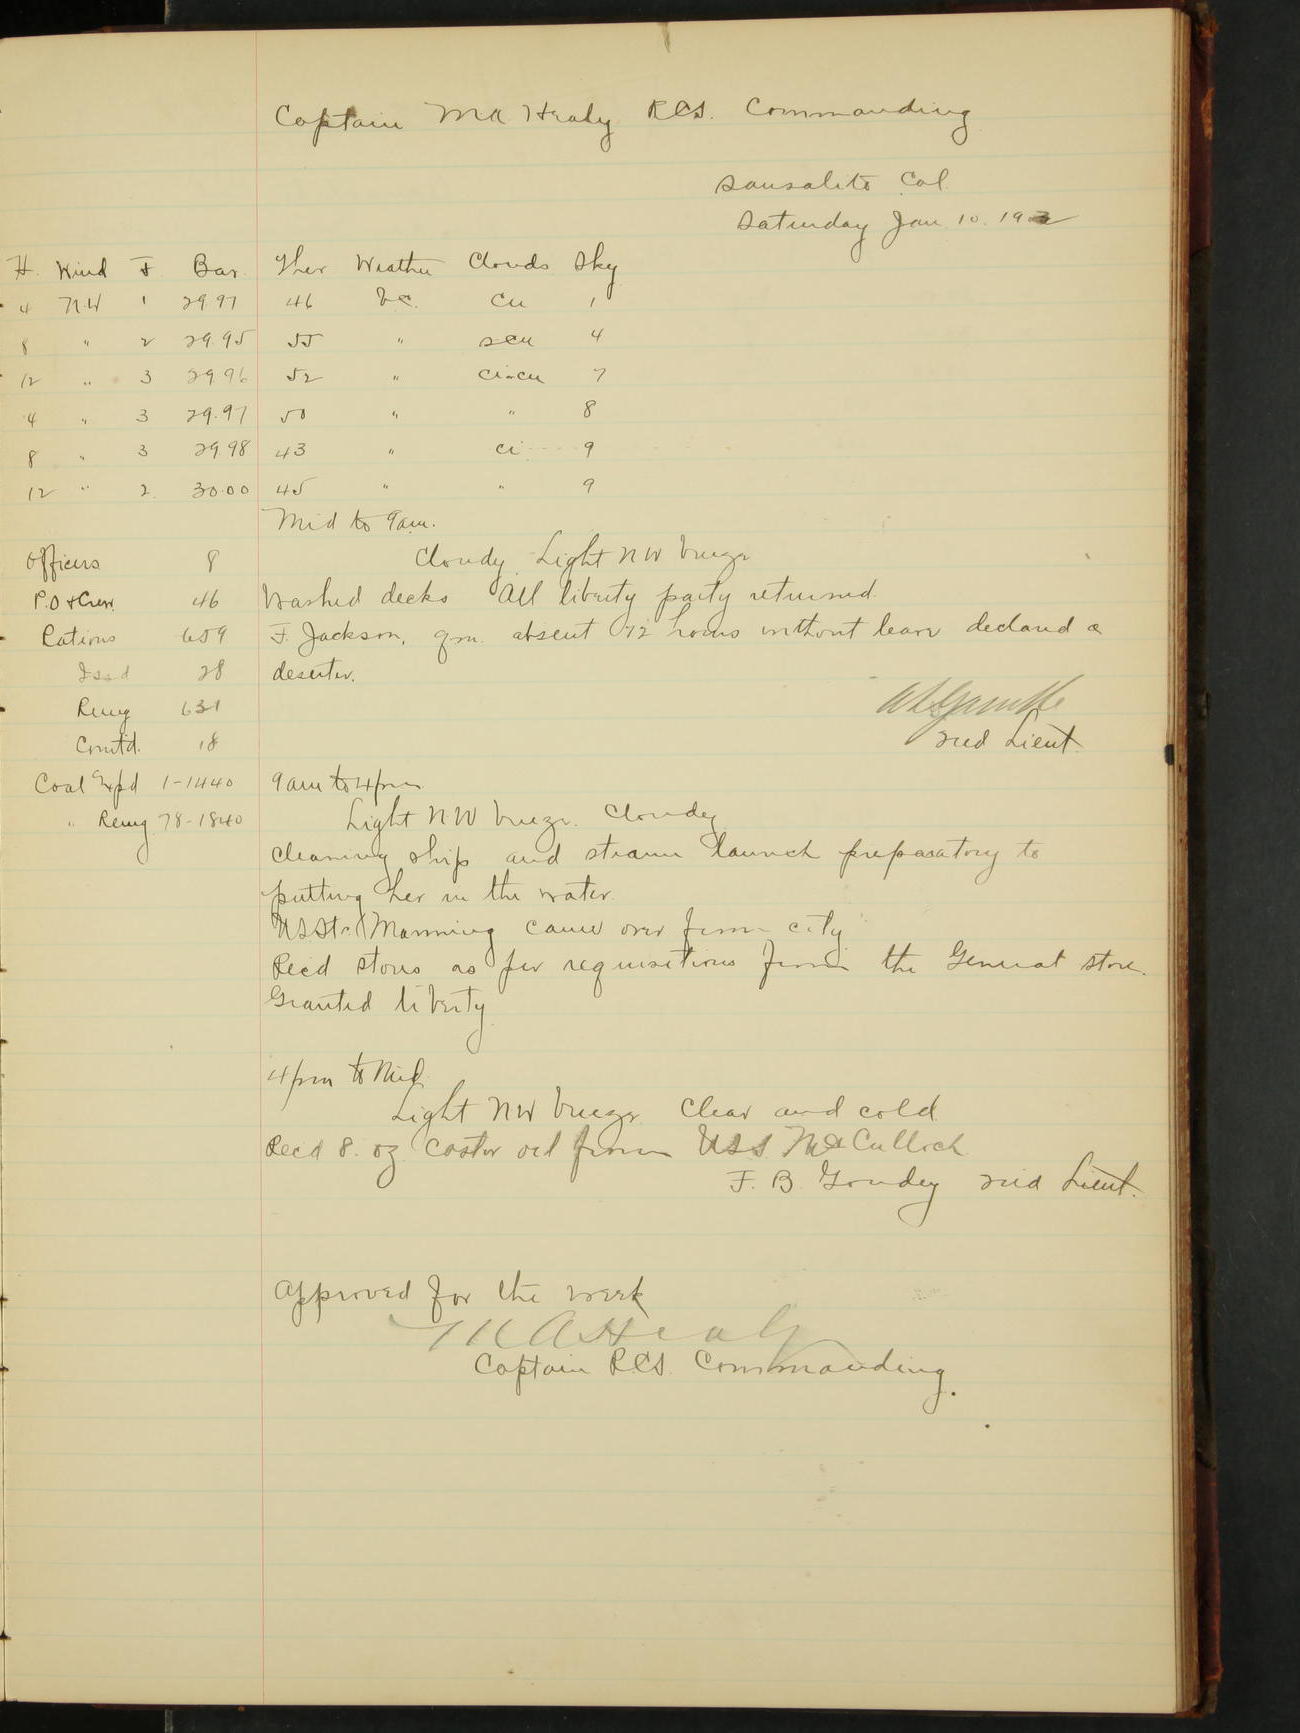 Captain M A Healy RCS. Commanding
Sausalito Cal.
Saturday Jan 10. 1903
H. Wind F Bar Ther Weather Clouds Sky
4 NW 1 29.97 46 bc. Cu 1
8 " 2 29.95 55 " scu 4
12 " 3 29.96 52 " ci-cu 7
4 " 3 29.97 50 " " 8
8 " 3 29.98 43 " ci 9
12 " 2 30.00 45 " " 9
Mid to 9am.
Officers 8 Cloudy Light NW breeze
P.O & Crew 46 Washed decks All liberty party returned.
Rations 659 F. Jackson, qm. absent 72 hours without leave declared a
Issd 28 deserter.
Remg 631
2nd Lieut
Comtd. 18
Coal Expd 1-1440 9am to 4pm
" Remg 78-1840 Light NW breeze. Cloudy
Cleaning ship and steam launch preparatory to
putting her in the water.
USStr Manning came over from city
Recd stores as per requisitions from the General store.
Granted liberty
4pm to Mid
Light NW breeze Clear and cold
Recd 8. oz castor oil from USS McCulloch
F. B. Goudey 2nd Lieut.
Approved for the week
M A Healy
Captain RCS. Commanding.